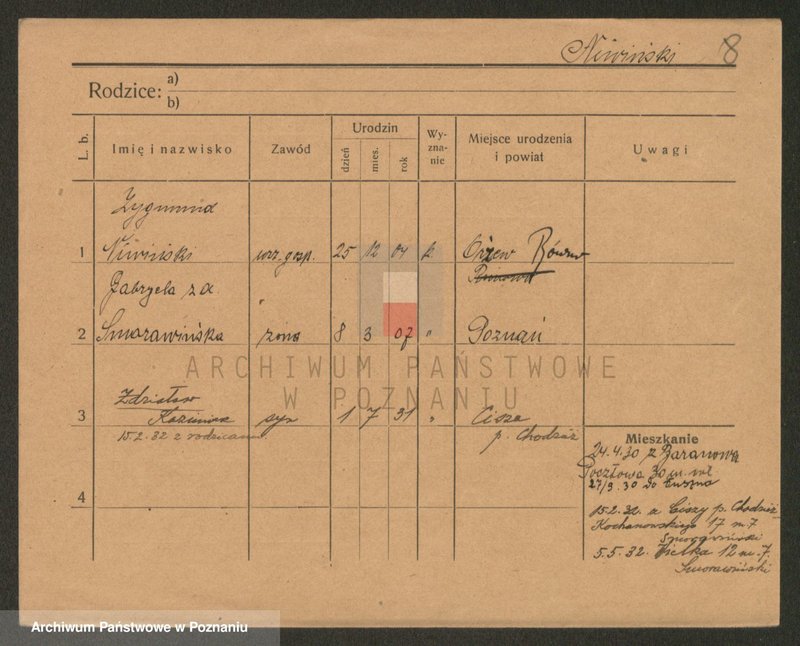 Niwiński 8
Rodzice: a)
b)
L. b. Imię i nazwisko Zawód Urodzin dzień mies. rok Wy-zna-nie Miejsce urodzenia i powiat Uwagi
Zygmund
1 Niwiński urz. gosp. 25 12 04 k. Orżew Równe
Gabryela z d. "
2 Smorawińska żona 8 3 07 " Poznań
ARCHIWUM PAŃSTWOWE
W POZNANIU
Zdzisław
3 Kazimierz syn 1 7 31 " Cisze
15.2.32 z rodzicami p. Chodzież
4
Mieszkanie
24.4.30 z Baranowa
Pocztowa 30 m.
27/9.30 do
15.2.32. z Ciszy p. Chodzież
Kochanowskiego 17 m. 7
Smorawiński
5.5.32. Wielka 12 m. 7.
Smorawiński
Archiwum Państwowe w Poznaniu